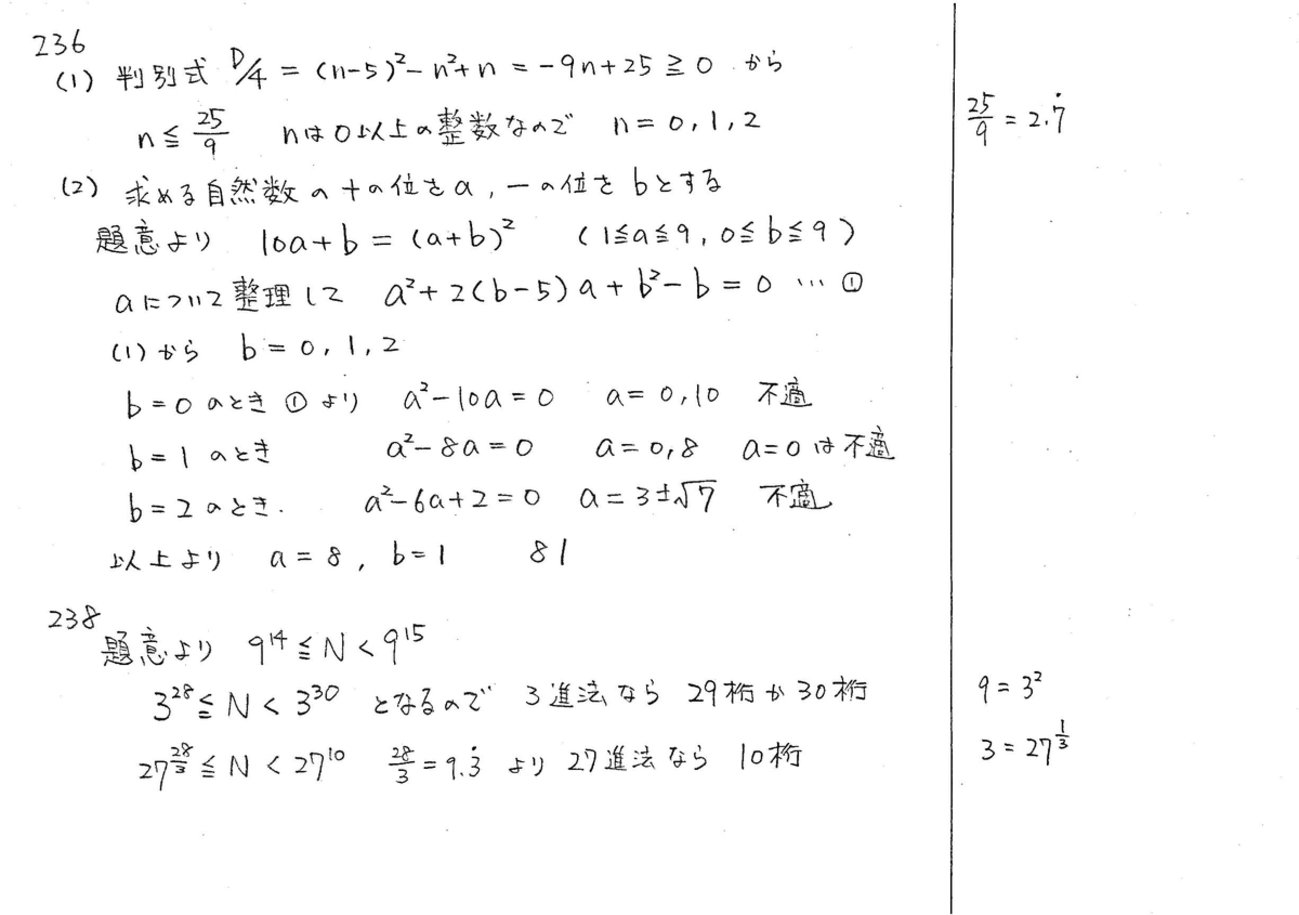 236
(1) 判別式 D/4 = (n-5)² - n² + n = -9n + 25 ≧ 0 から
n ≦ 25/9 nは0以上の整数なので n = 0, 1, 2
25/9 = 2.7̇
(2) 求める自然数の十の位をa, 一の位をbとする
題意より 10a + b = (a+b)² (1≦a≦9, 0≦b≦9)
aについて整理して a² + 2(b-5)a + b² - b = 0 … ①
(1)から b = 0, 1, 2
b = 0 のとき ① より a² - 10a = 0 a = 0, 10 不適
b = 1 のとき a² - 8a = 0 a = 0, 8 a = 0 は不適
b = 2 のとき. a² - 6a + 2 = 0 a = 3 ± √7 不適
以上より a = 8, b = 1 81
238
題意より 9¹⁴ ≦ N < 9¹⁵
3²⁸ ≦ N < 3³⁰ となるので 3進法なら 29桁か30桁
9 = 3²
27^(28/3) ≦ N < 27¹⁰ 28/3 = 9.3̇ より 27進法なら 10桁
3 = 27^(1/3)